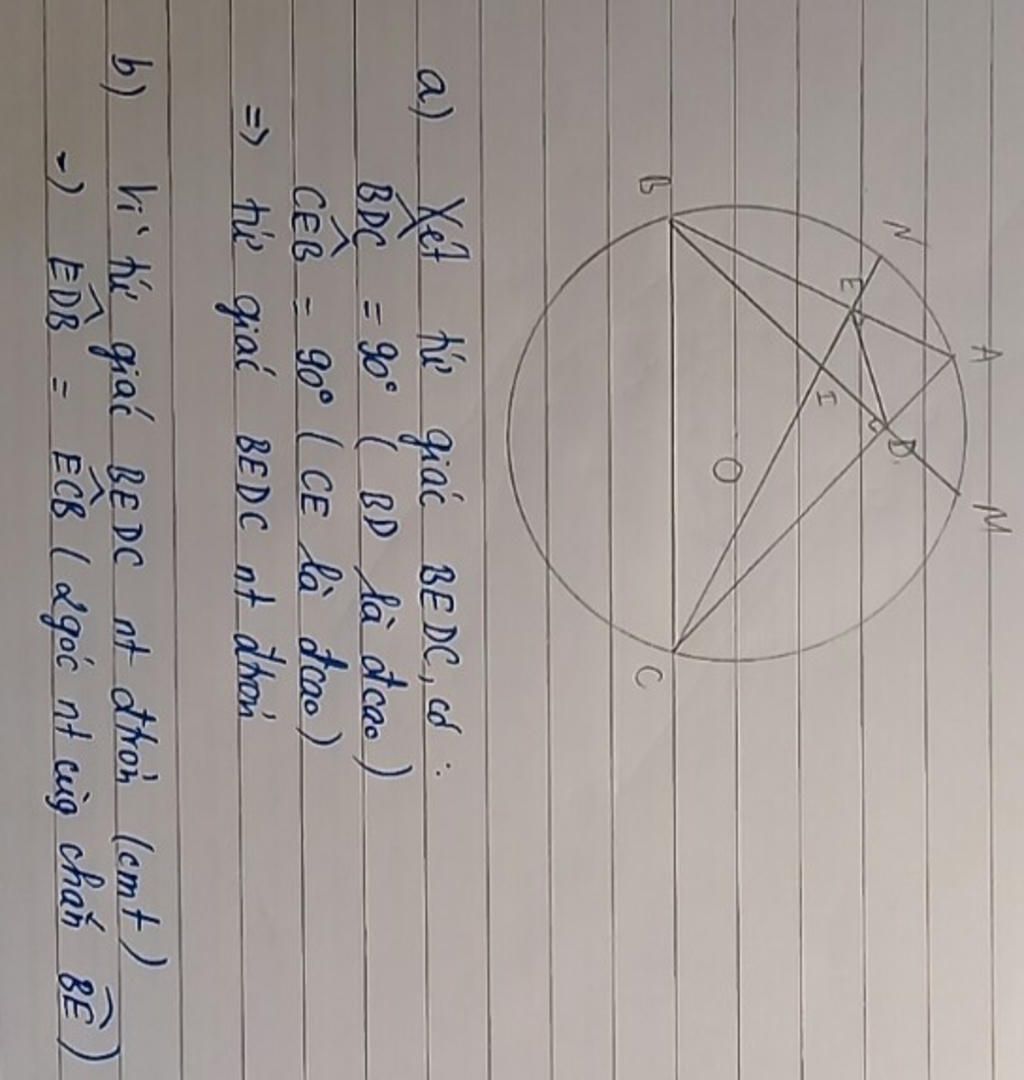 N
A
M
E
D
I
O
B
C
a) Xét tứ giác BEDC, có :
BDC = 90° ( BD là đcao )
CEB = 90° ( CE là đcao )
=> tứ giác BEDC nt đtròn
b) Vì tứ giác BEDC nt đtròn (cmt)
-) EDB = ECB ( 2 góc nt cùg chắn BE )